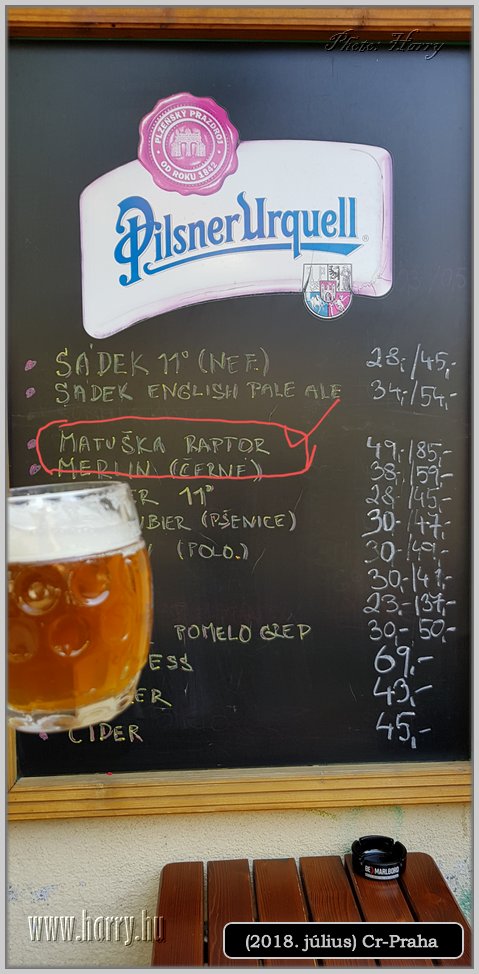 Photo: Harry
PLZEŇSKÝ PRAZDROJ
OD ROKU 1842
Pilsner Urquell
SÁDEK 11° (NEF.) 28,-/45,-
SÁDEK ENGLISH PALE ALE 34,-/54,-
MATUŠKA RAPTOR 49,-/85,-
MERLIN (ČERNÉ) 38,-/59,-
ER 11° 28,-/45,-
UBIER (PŠENICE) 30,-/47,-
(POLO.) 30,-/49,-
30,-/41,-
23,-/37,-
POMELO GREP 30,- 50,-
ESS 69,-
ER 43,-
CIDER 45,-
BE MARLBORO
www.harry.hu
(2018. július) Cr-Praha